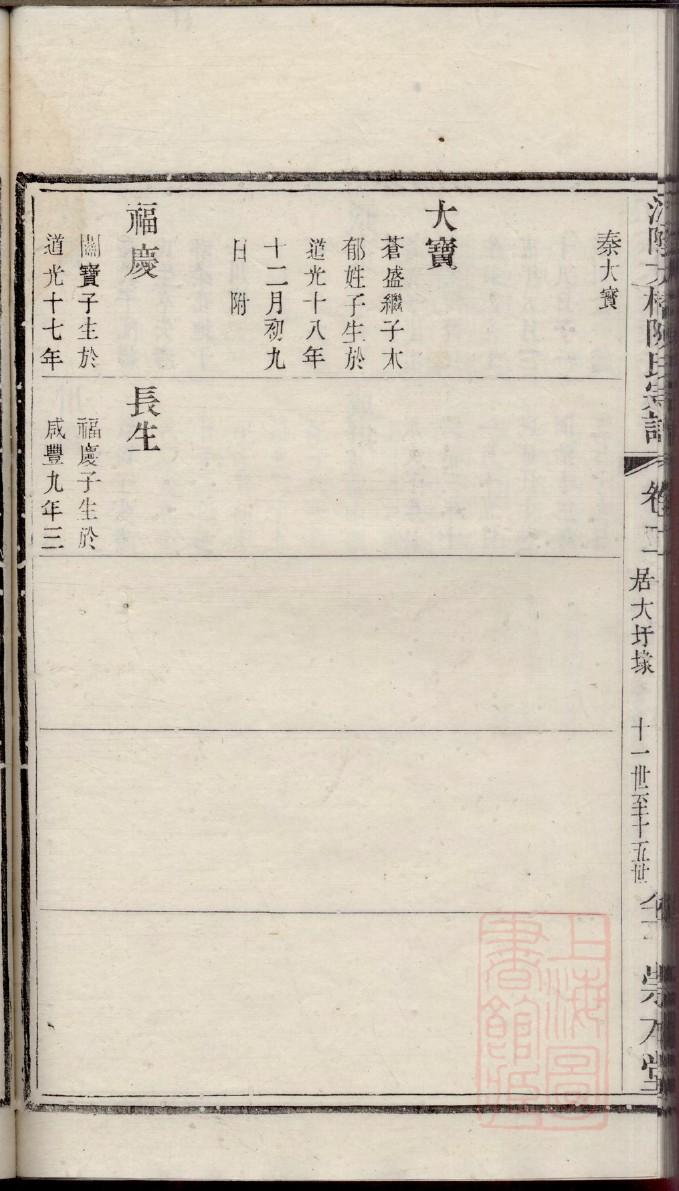 江陰大橋陳氏宗譜
卷
居大圩埭
十一世至十五世
崇本堂
秦大寶
大寶
蒼盛繼子本
郁姓子生於
道光十八年
十二月初九
日附
福慶
關寶子生於
道光十七年
長生
福慶子生於
咸豐九年三
上海圖書館藏